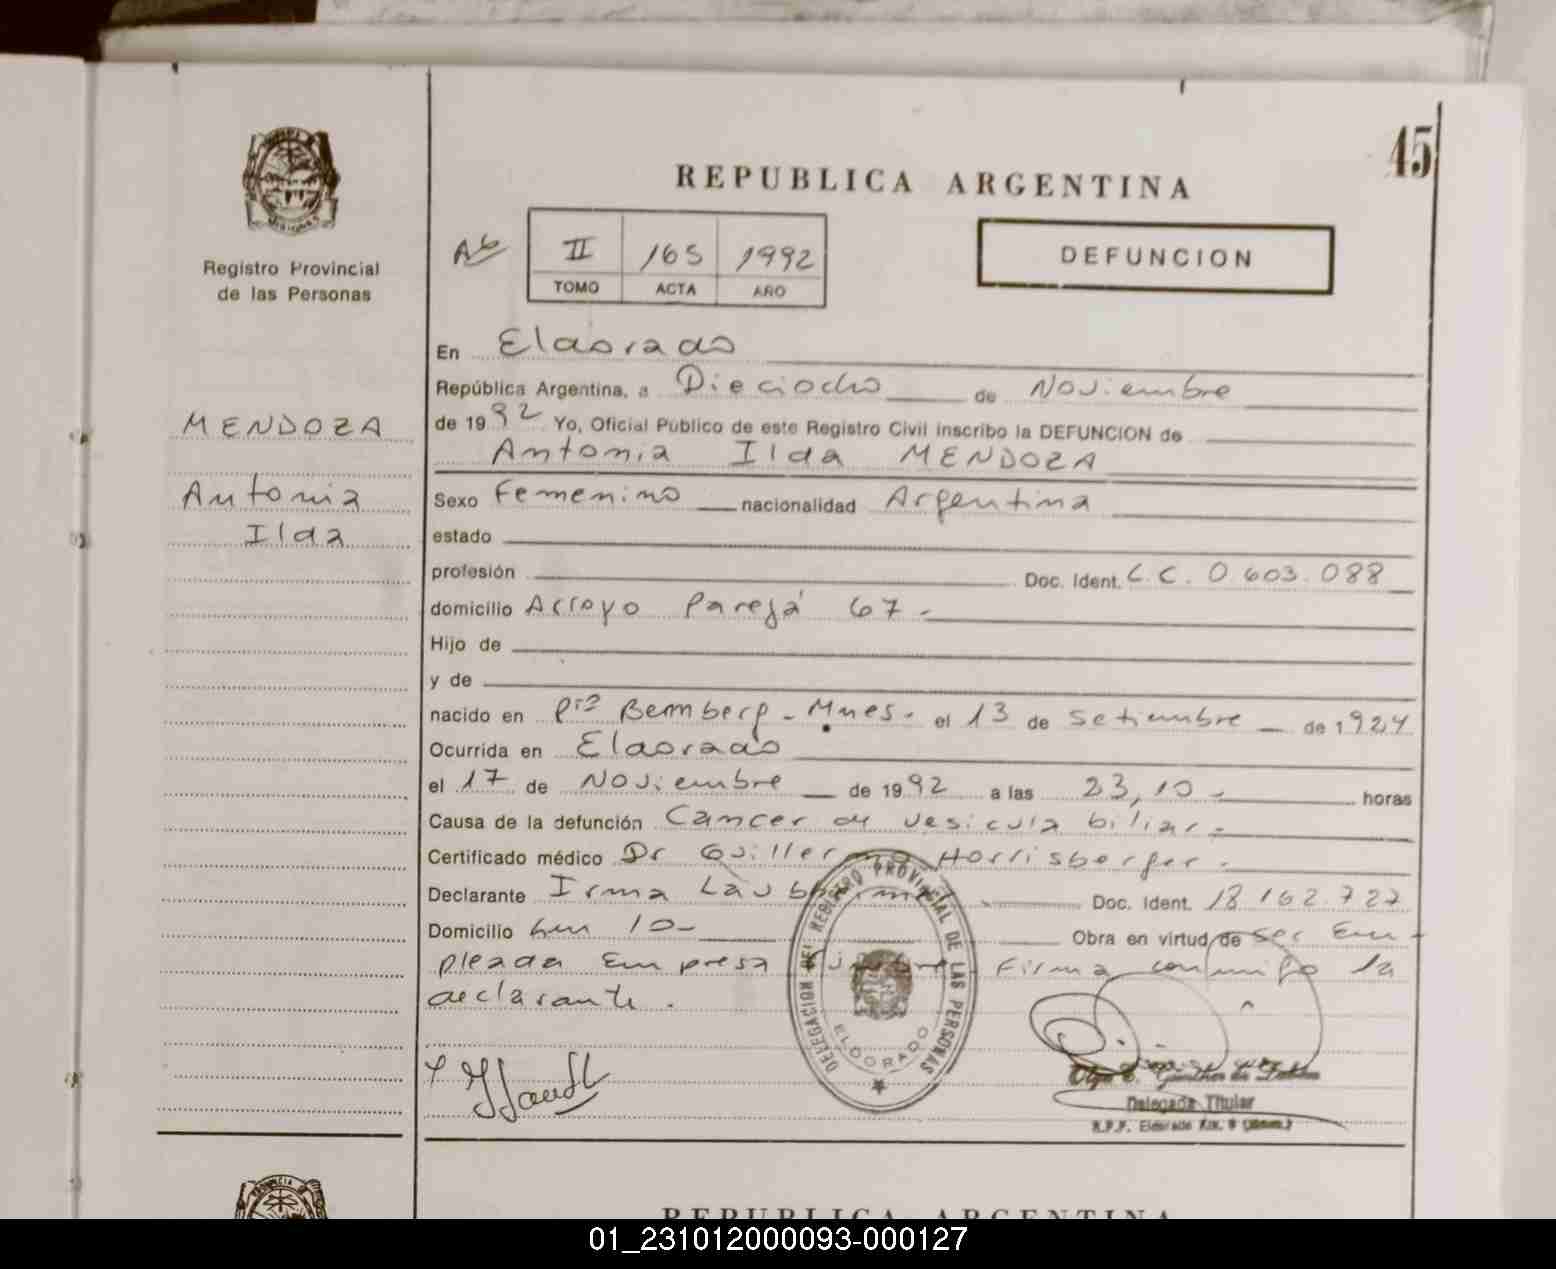 45
REPUBLICA ARGENTINA
II 165 1992
TOMO ACTA AÑO
DEFUNCION
Registro Provincial
de las Personas
MENDOZA
Antonia
Ilda
En Eldorado
República Argentina, a Dieciocho de Noviembre
de 1992 Yo, Oficial Público de este Registro Civil inscribo la DEFUNCION de
Antonia Ilda MENDOZA
Sexo Femenino nacionalidad Argentina
estado
profesión Doc. Ident. L.C. 0.603.088
domicilio Arroyo Pareja 67.-
Hijo de
y de
nacido en Pto Bemberg - Mnes. el 13 de Setiembre de 1924
Ocurrida en Eldorado
el 17 de Noviembre de 1992 a las 23,10 - horas
Causa de la defunción Cancer de vesicula biliar.-
Certificado médico Dr Guillermo Horrisberger.-
Declarante Irma Doc. Ident. 18.162.727
Domicilio km 10- Obra en virtud de ser Em-
pleada Empresa Firma conmigo la
declarante.
DELEGACION DEL REGISTRO PROVINCIAL DE LAS PERSONAS
ELDORADO
Delegada Titular
R.P.P. Eldorado Km. 9 (Mnes.)
REPUBLICA ARGENTINA
01_231012000093-000127